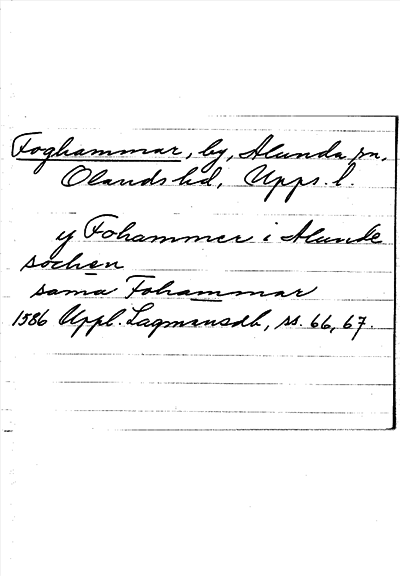 Foghammar, by, Alunda sn,
Olands hd, Upps. l.
y Fohammer i Alunde
sochen
sama Fohammar
1586 Uppl. Lagmansdb, ss. 66, 67.